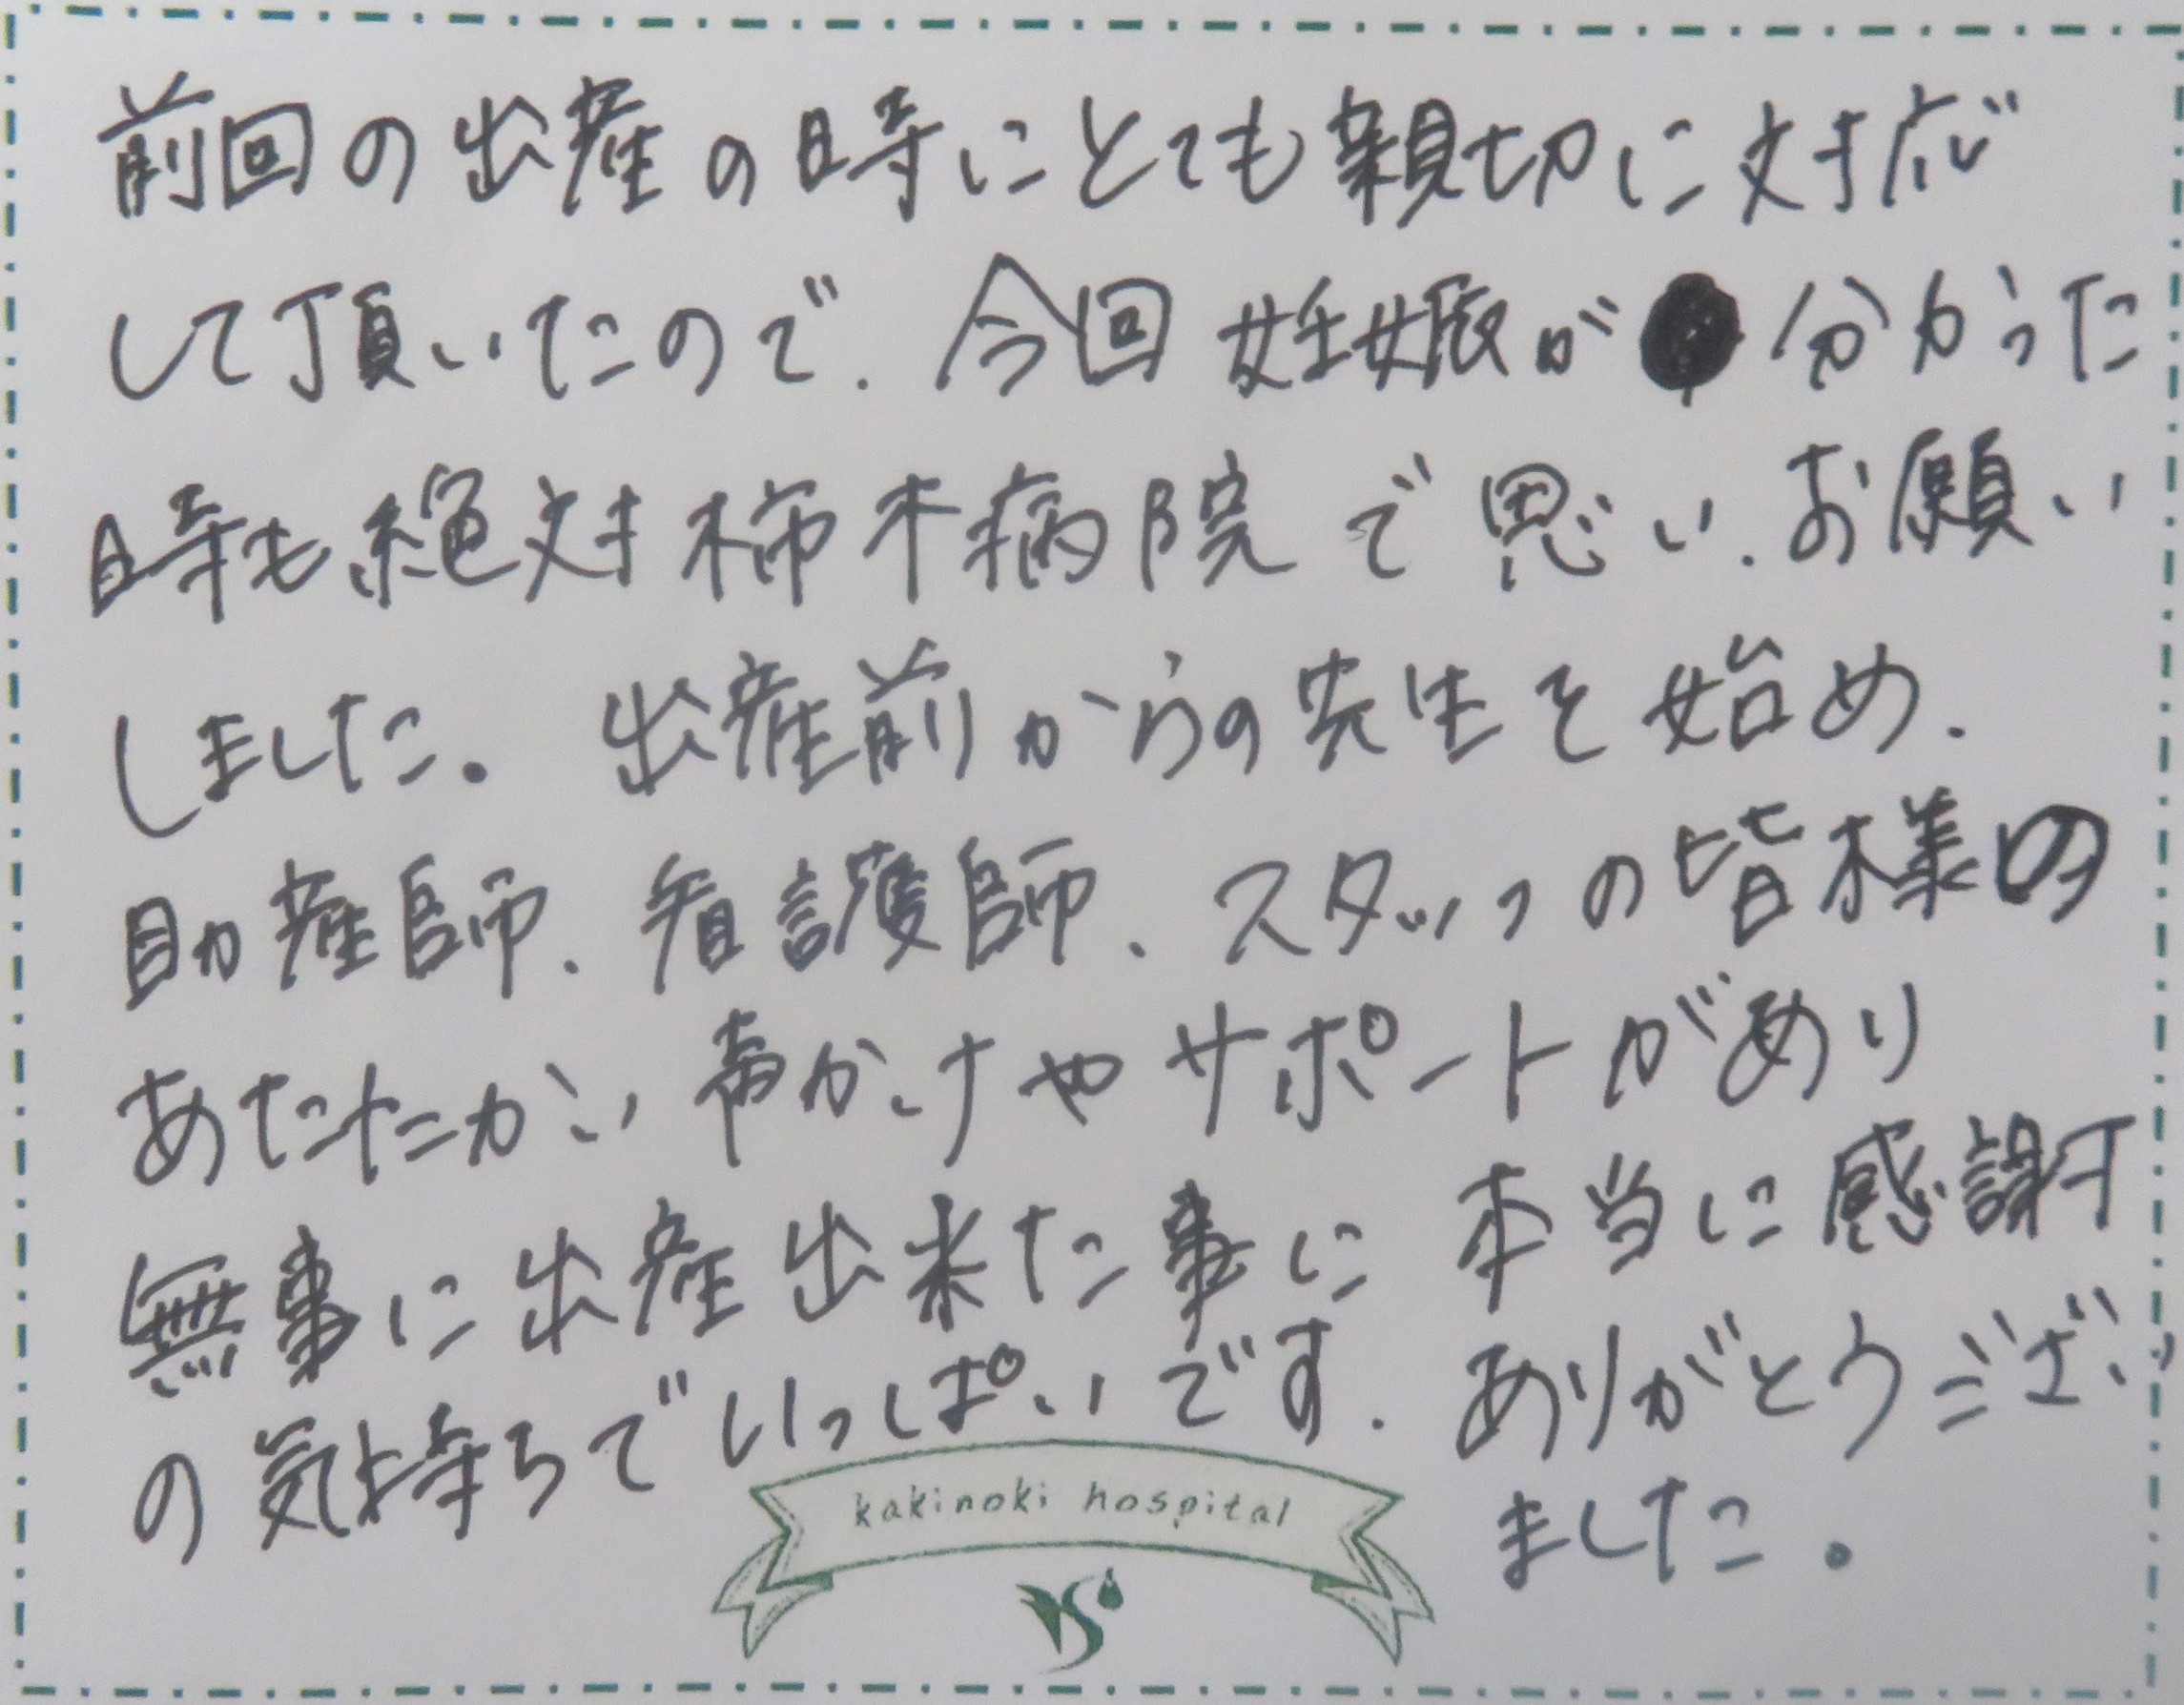 前回の出産の時にとても親切に対応
して頂いたので、今回妊娠が分かった
時も絶対柿木病院で思い、お願い
しました。出産前からの先生を始め、
助産師、看護師、スタッフの皆様の
あたたかい声かけやサポートがあり
無事に出産出来た事に本当に感謝
の気持ちでいっぱいです。ありがとうござい
ました。
kakinoki hospital